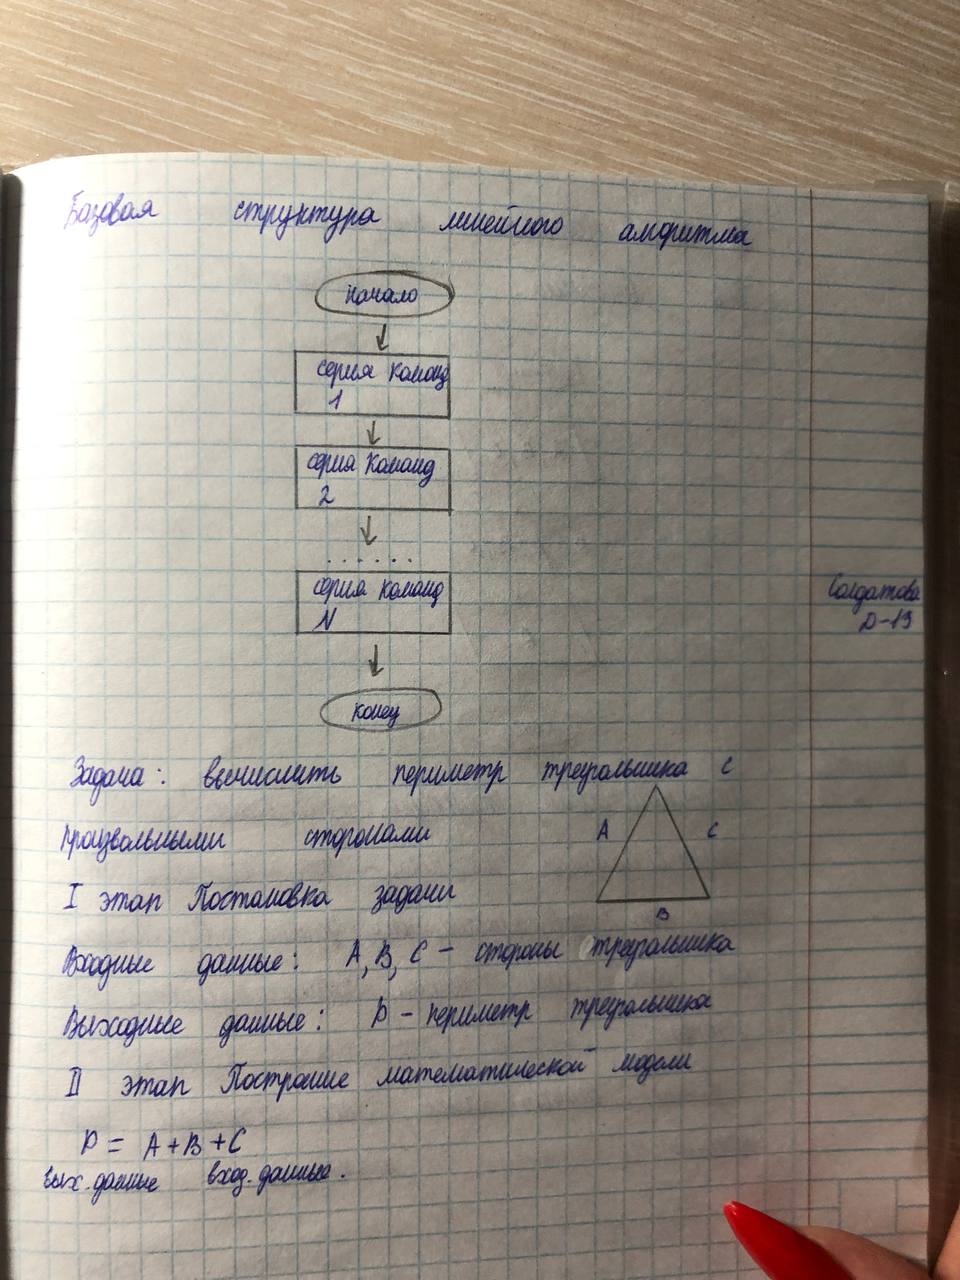 Базовая структура линейного алгоритма
начало
серия команд
1
серия команд
2
......
серия команд
N
конец
Солдатова
Д-19
Задача: вычислить периметр треугольника с
произвольными сторонами
A
C
B
I этап Постановка задачи
Входные данные: A, B, C - стороны треугольника
Выходные данные: P - периметр треугольника
II этап Построение математической модели
P = A+B+C
вых. данные вход. данные.